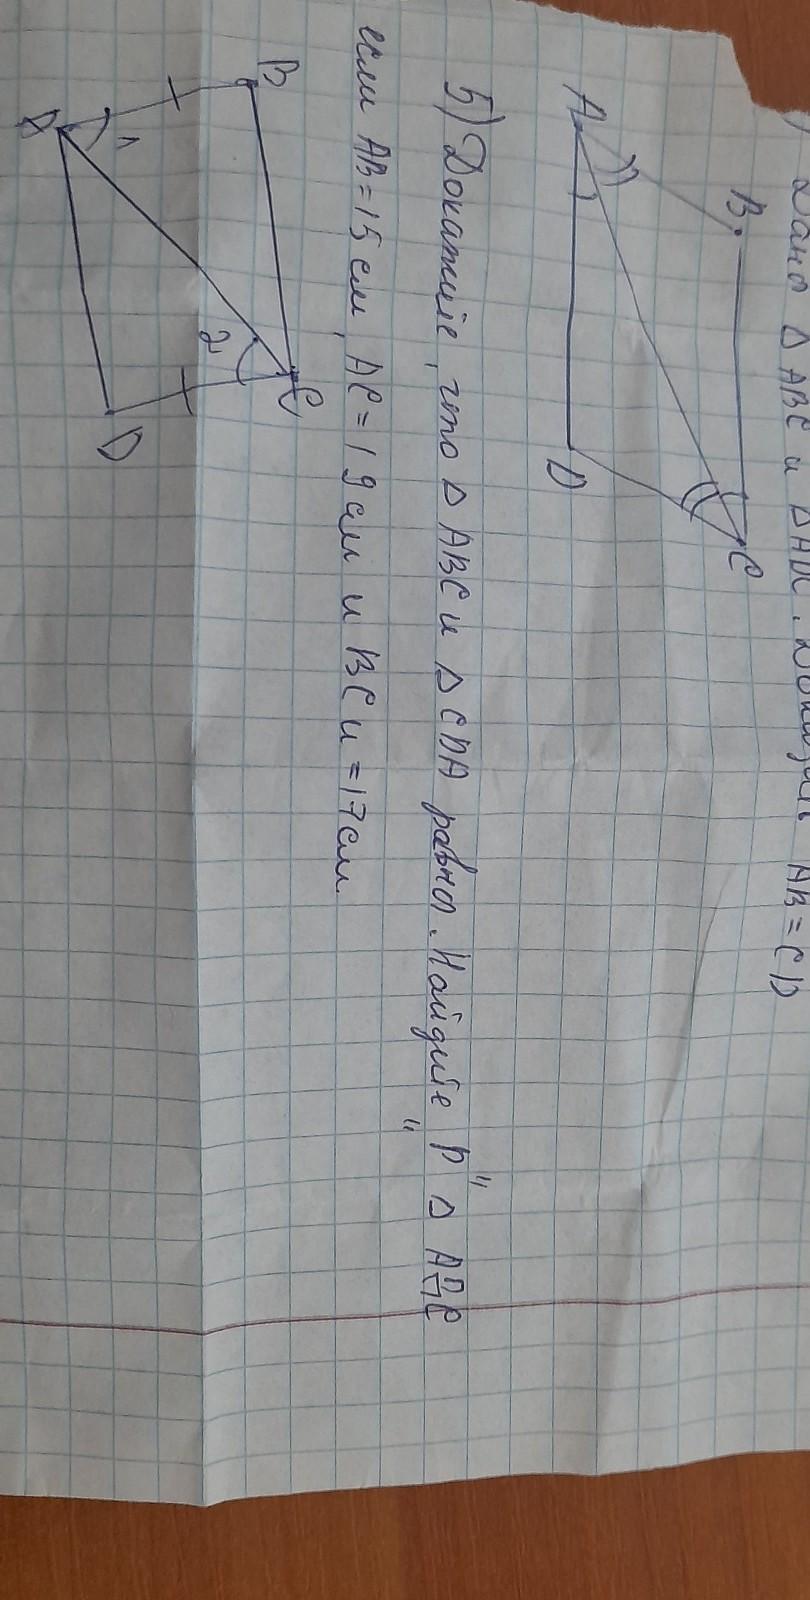 Дано Δ ABC и Δ ADC. Доказать AB = CD
A
B
C
D
5) Докажите, что Δ ABC и Δ CDA равны. Найдите "P" Δ ADC
если AB = 15 см, AC = 19 см и BC и = 17 см.
B
C
A
D
1
2